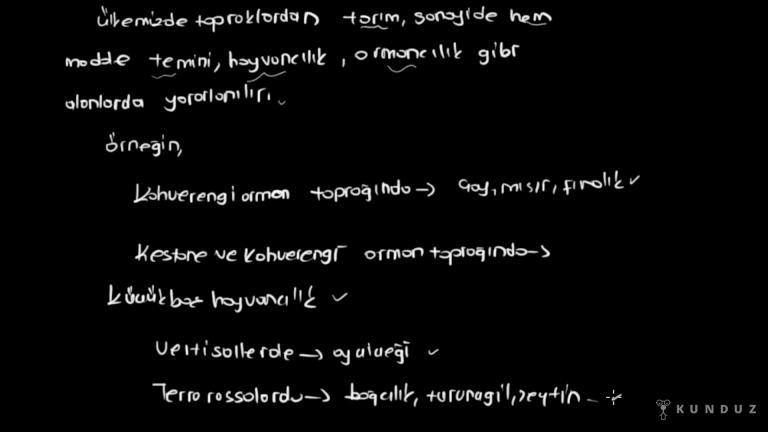 Ülkemizde topraklardan tarım, sanayide ham
madde temini, hayvancılık, ormancılık gibi
alanlarda yararlanılır.
Örneğin,
Kahverengi orman toprağında → çay, mısır, fındık ✓
Kestane ve kahverengi orman toprağında →
küçükbaş hayvancılık ✓
Vertisollerde → ayçiçeği ✓
Terra rossalarda → bağcılık, turunçgil, zeytin
KUNDUZ